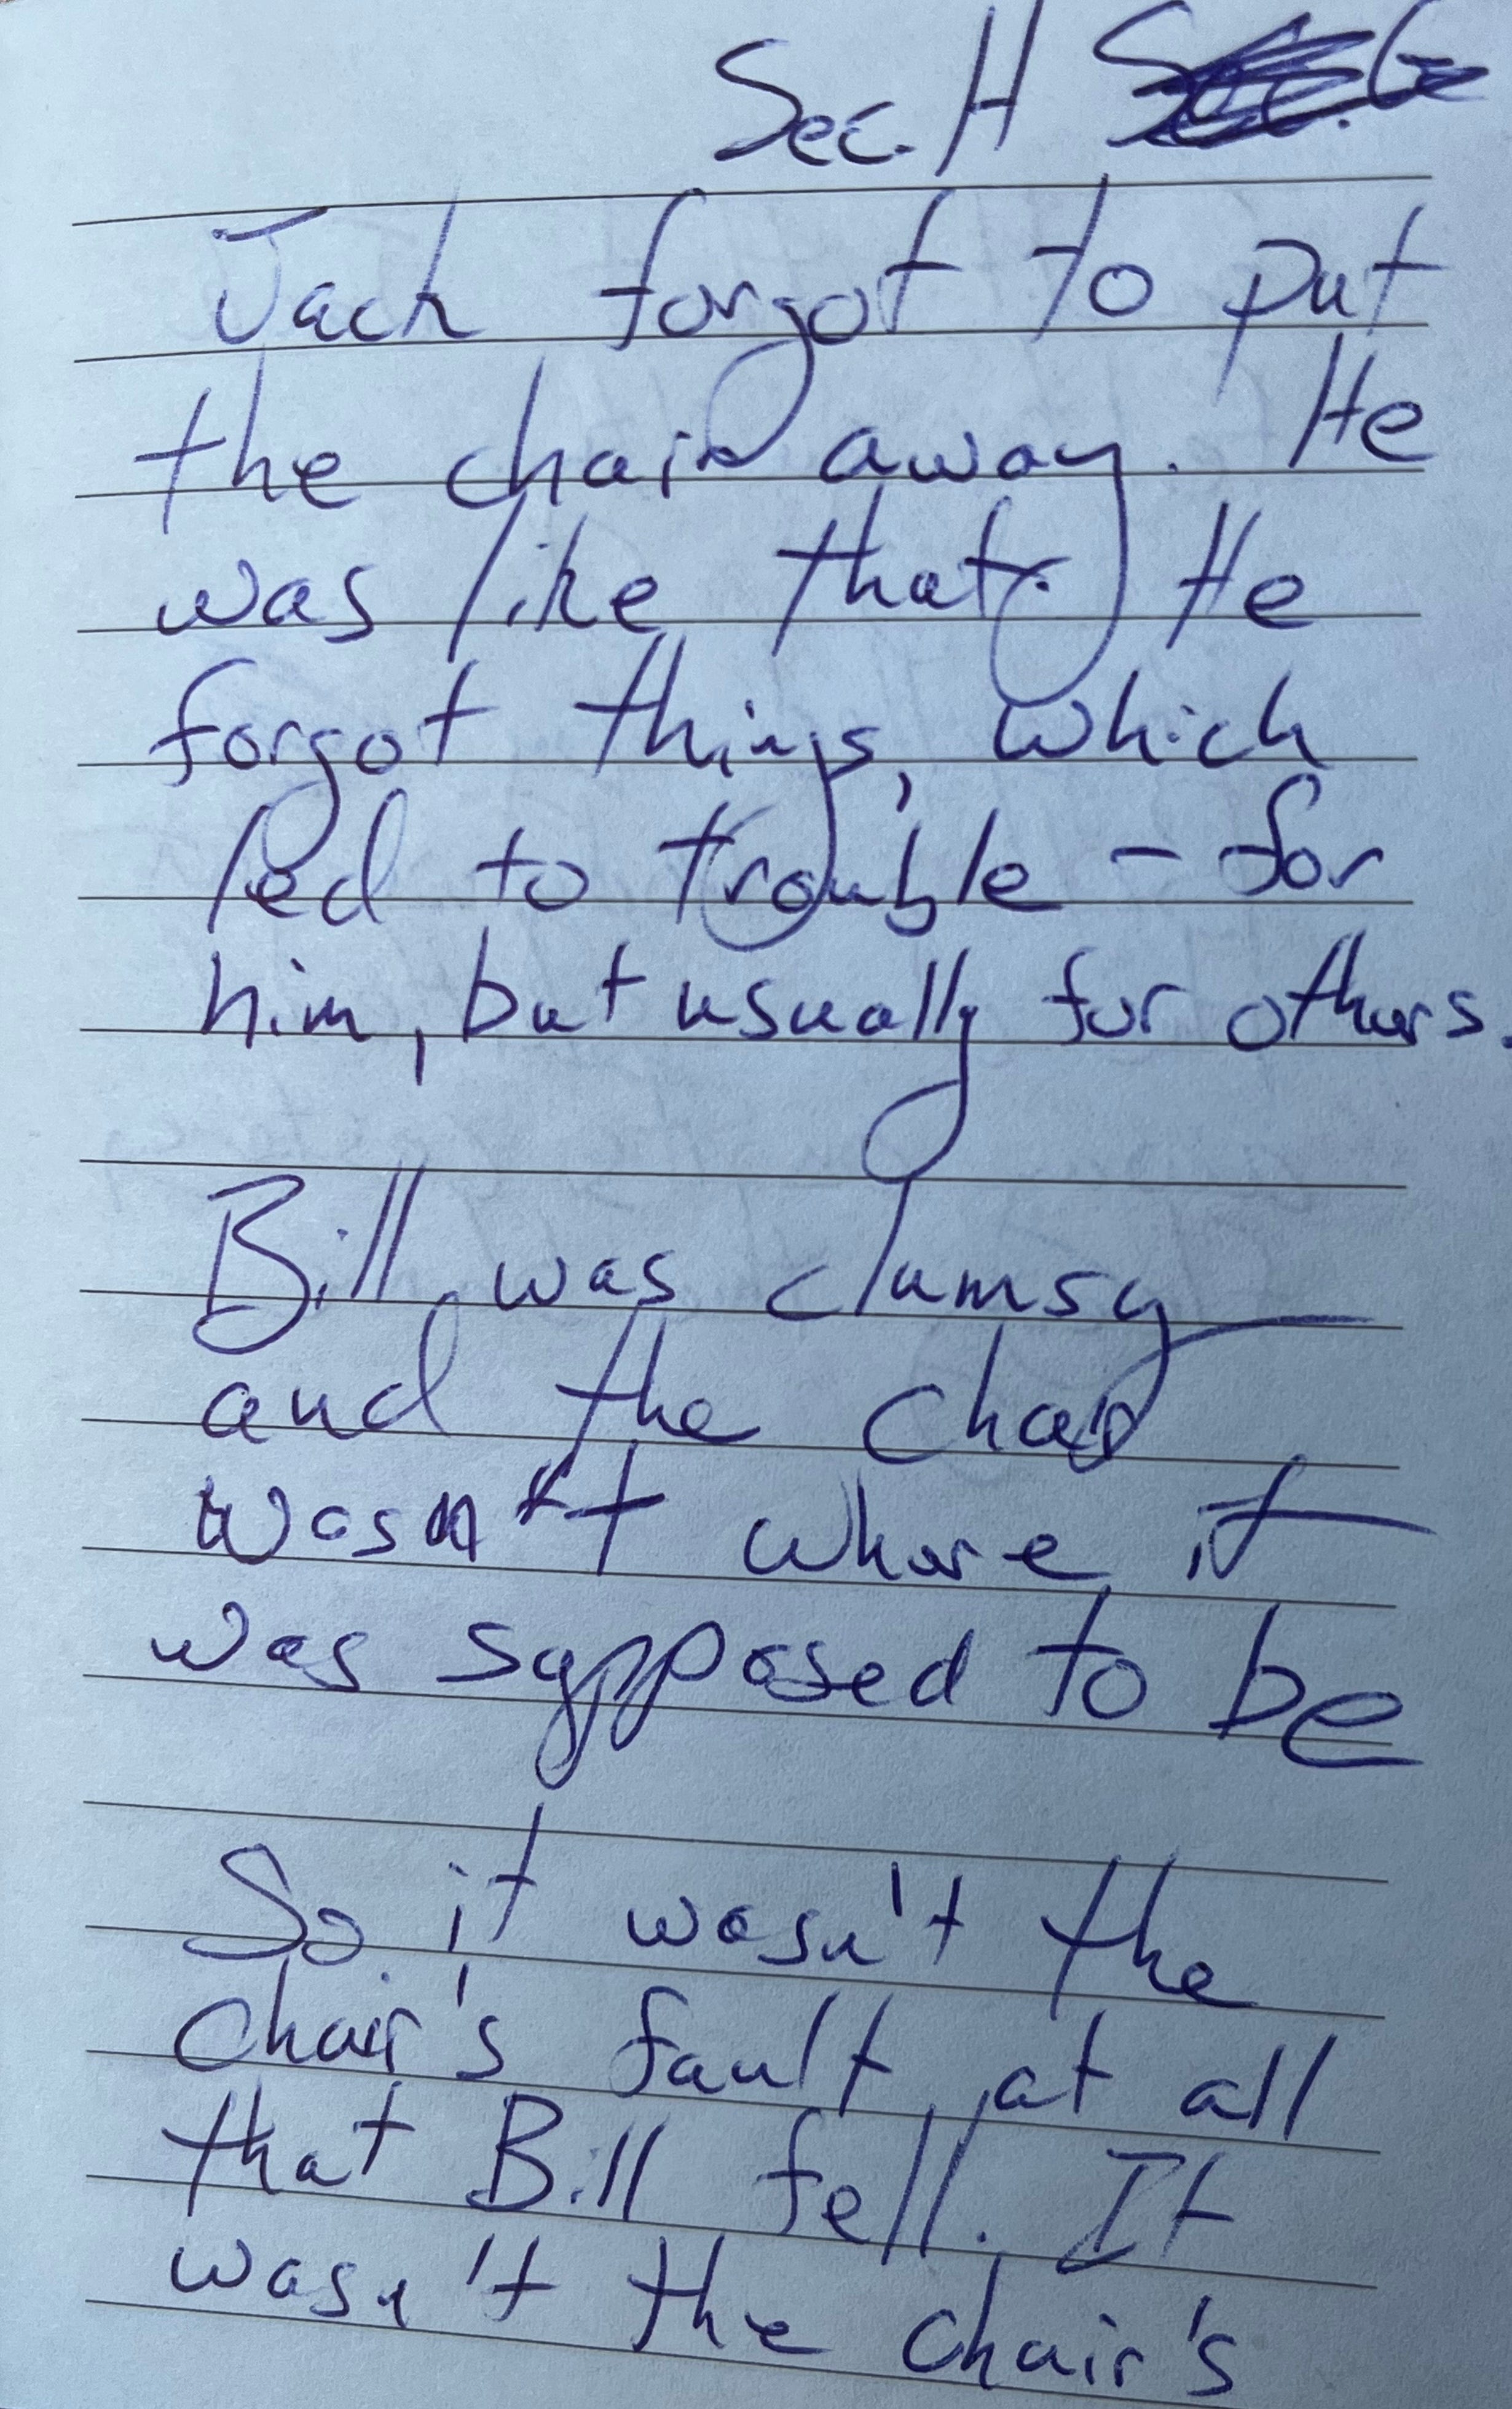 Sec. H Sec. G
Jack forgot to put
the chair away. He
was like that. He
forgot things, which
led to trouble – for
him, but usually for others.
Bill was clumsy
and the chair
wasn't where it
was supposed to be
So it wasn't the
chair's fault at all
that Bill fell. It
wasn't the chair's